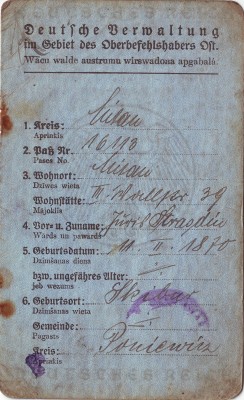 Deutsche Verwaltung
im Gebiet des Oberbefehlshabers Ost.
Wäcu walde austrumu wirswadona apgabalā.
1. Kreis: Mitau
Aprinkis
2. Paß Nr. 16113
Pases No.
3. Wohnort: Mitau
Dzïwes wieta
Wohnstätte: II. Wallstr 39
Majoklis
4. Vor- u. Zuname: Jurris
Wards un pawards
5. Geburtsdatum: 11. II. 1870
Dzimšanas diena
bzw. ungefähres Alter:
jeb wezums
6. Geburtsort:
Dzimšanas wieta
Gemeinde:
Pagasts
Kreis: Poniewicz
Aprinkis